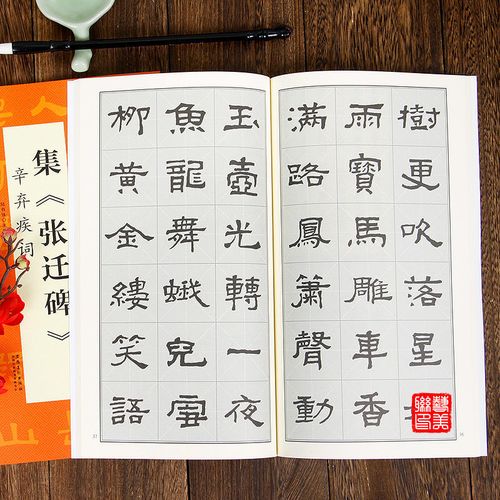 樹更吹落星
雨寶馬雕車香
滿路鳳簫聲動
36
玉壺光轉一夜
魚龍舞蛾兒雪
柳黃金縷笑語
37
集《张迁碑》
辛弃疾词
藝美